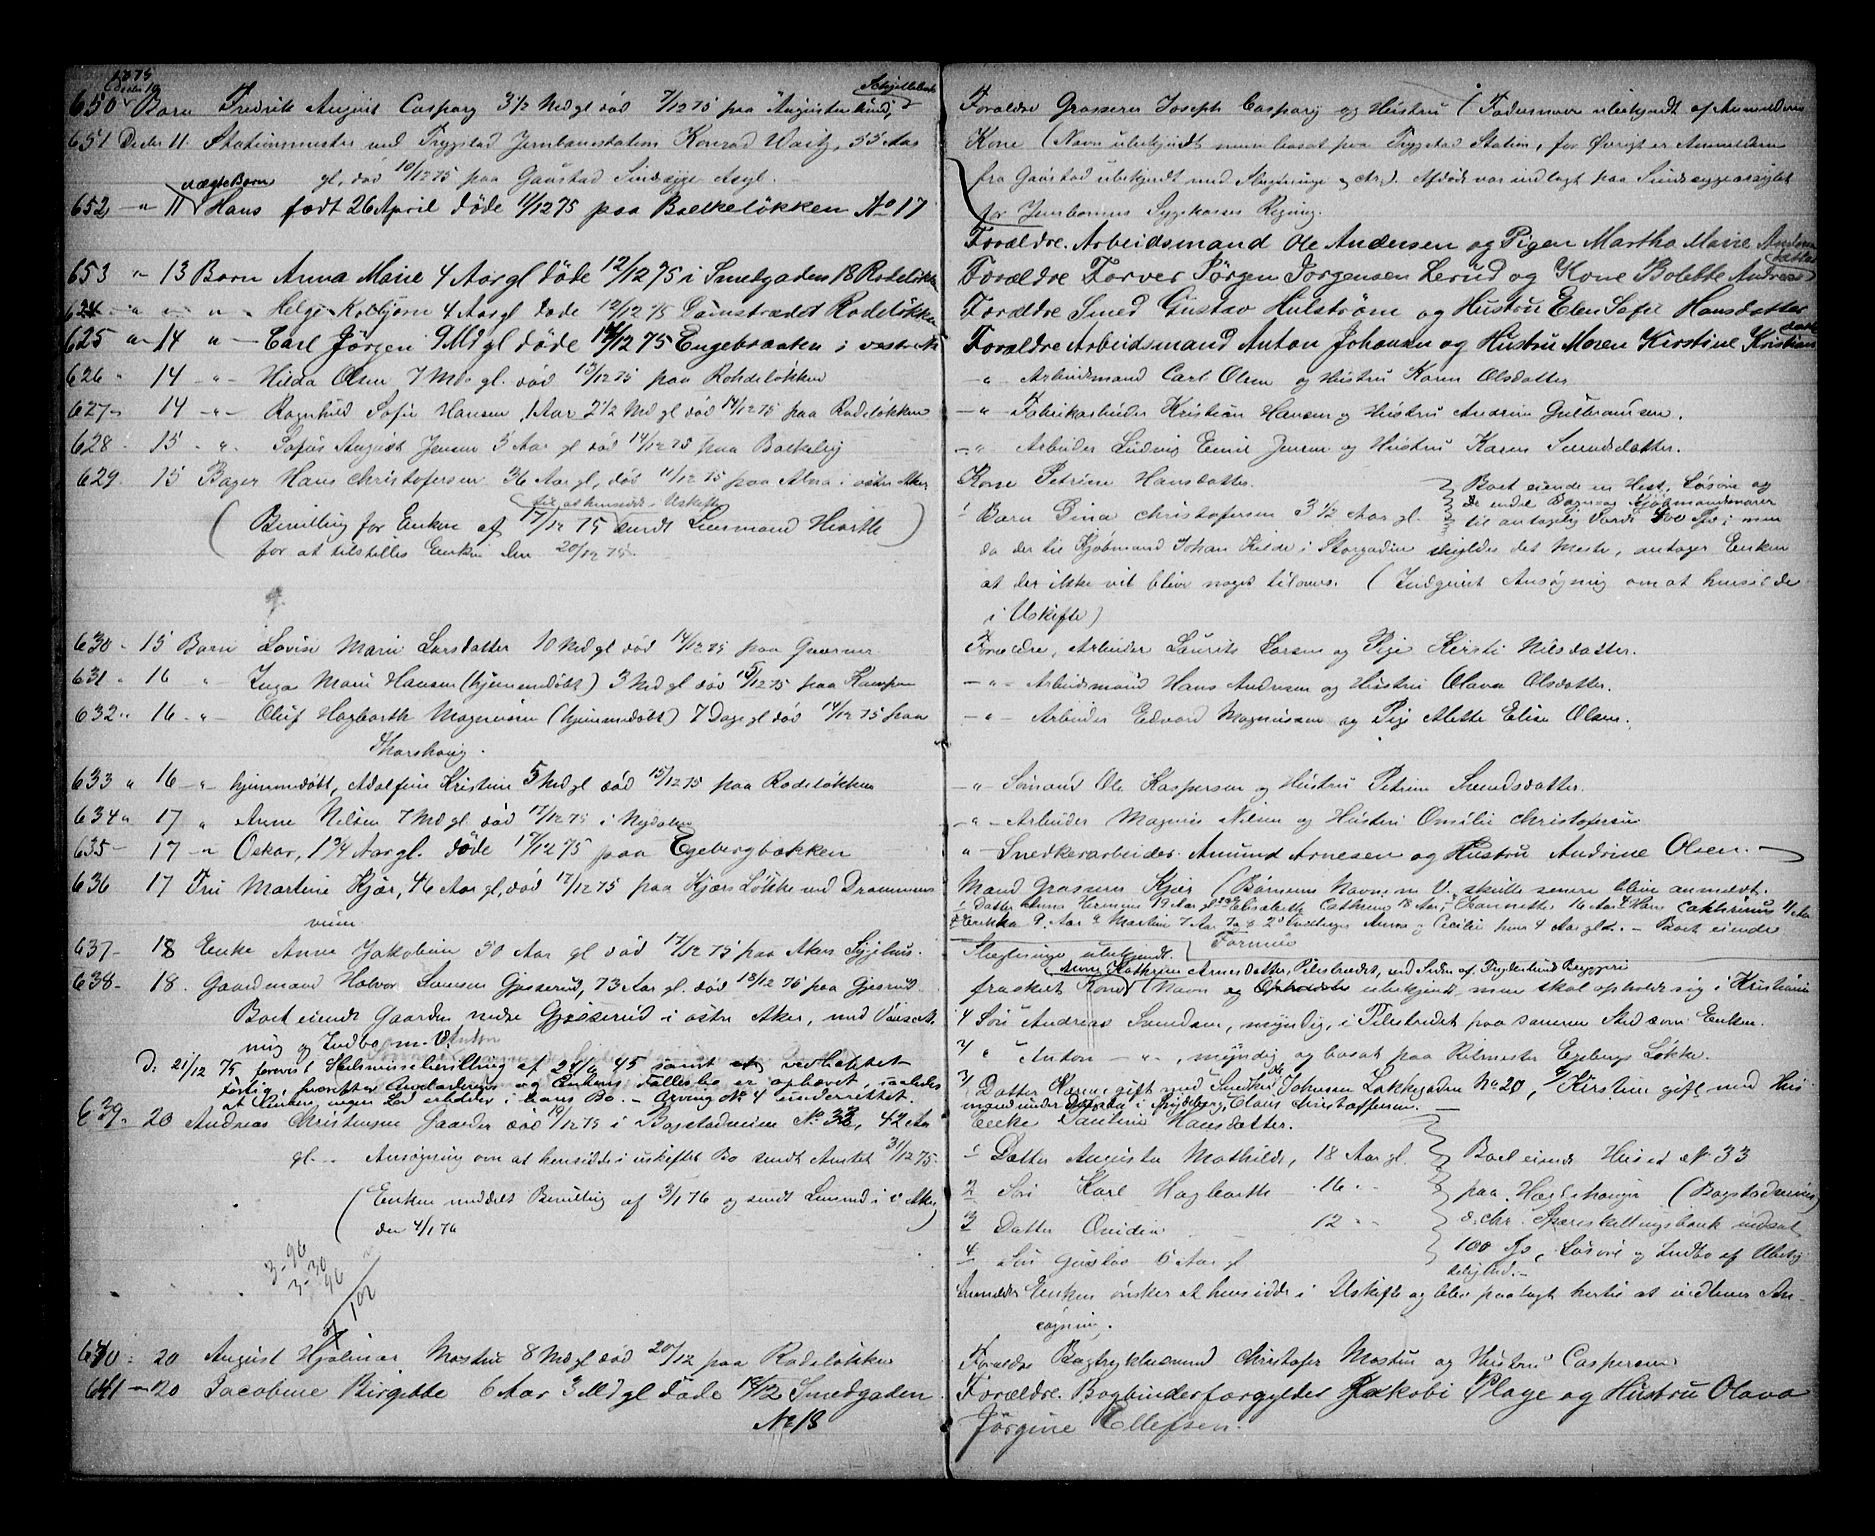 1875
Decbr 10
650 Barn Fredrik August Caspary 3½ Md gl. død 7/12 75 paa Augustenlund,
651 Decbr 11. Stationsmester ved Trygstad Jernbanestation Konrad 55 Aar
gl, død 10/12 75 paa Gaustad Sindssyge Asyl.
uægte Barn
652 " 11 Hans født 26 April døde 11/12 75 paa Bælkeløkken No 17
653 " 13 Barn Anna Marie 4 Aar gl døde 12/12 75 i Smedgaden 18 Rodeløkken
624 " " " Helge Kolbjørn 4 Aar gl døde 12/12 75 Damstrædet Rodeløkken
625 " 14 " Carl Jörgen 9 Md gl døde 14/12 75 Engebraaten i vestr.
626 " 14 " Hilda Olsen 7 Mdr gl. død 13/12 75 paa Rodeløkken
627 " 14 " Ragnhild Sofie Hansen 1 Aar 2½ Md gl død 14/12 75 paa Rodeløkken
628 - 15 - " Sofus August Jensen 3 Aar gl død 14/12 75 paa
629 - 15 Bager Hans Christofersen 36 Aar gl, død 11/12 75 paa Alna i østre Aker
til at hensidde i Uskiftet
(Bevilling for Enken af 17/12 75 sendt Lensmand Hiorth
for at tilstilles Enken den 20/12 75)
630 - 15 Barn Lovise Marie Larsdatter 10 Md gl død 14/12 75 paa
631 " 16 " Inga Marie Hansen (hjemmedøbt) 3 Md gl død 15/12 75 paa Kampen
632 " 16 - " Oluf Hagbarth Magnussen (hjemmedøbt) 7 Dage gl død 14/12 75 paa
Thorshaug.
633 " 16 - " - hjemmedøbt, Adolfine Kristine 5 Md gl død 15/12 75 paa Rodeløkken
634 " 17 " Anne Nilsen 7 Md gl. død 17/12 75 i Nydalen
635 - 17 - " Oskar, 1¾ Aar gl. døde 17/12 75 paa Egebergbakken
636 17 Fru Martine Kjær, 46 Aar gl, død 17/12 75 paa Kjærs Løkke ved Drammens
veien.
637 - 18 Enke Anne Jakobine 30 Aar gl død 17/12 75 paa Akers Sygehus.
638 - 18. Gaardmand Halvor Gjøsserud, 73 Aar gl. død 18/12 75 paa Gjøsrud
Boet eiende Gaarden nedre Gjøsserud i østre Aker, med Besæt-
ning og Indbo m. V.
D. 21/12 75 forevist Skilsmissebevilling af 24/6 45 samt
at Enken ingen Lod erholder i dens Bo. - Arving No 4 underrettet.
639 - 20 Andreas Christensen Gaarder død 19/12 75 i Bogstadveien No 33, 42 Aar
gl. - Ansøgning om at hensidde i uskiftet Bo sendt Amtet 31/12 75.
(Enken meddelt Bevilling af 3/1 76 og sendt Lensmd i v. Aker
den 4/1 76)
3-96
3-30
96
640 - 20 August Hjalmar 8 Md gl død 20/12 paa Rodeløkken
641 - 20 Jacobine Birgitte 6 Aar 3 Md gl døde 19/12 Smedgaden
No 13
Forældre Grosserer Joseph Caspary og Hustru (Fødernavn ubekjendt af Anmelderen
Kone (Navn ubekjendt men bosat paa Trygstad Station, for Øvrigt er Anmelderen
fra Gaustad ubekjendt med Slægtninge . Afdøde var indlagt paa Sindssygeasylet
for Jernbanens Sygekasses Regning.
Forældre. Arbeidsmand Ole Andersen og Pigen Martha Marie
Forældre Farver Jörgen Jorgensen Lerud og Kone Bolette Andreas
Forældre Smed Gustav Hulstrøm og Hustru Elen Sofie Hansdatter
Forældre Arbeidsmand Anton Johansen og Hustru Maren Kirstine Kristian
datter
- " - Arbeidsmand Carl Olsen og Hustru Karen Olsdatter
- " - Fabrikarbeider Kristian Hansen og Hustru Andrine Gulbrandsen.
- " Arbeider Ludvig Emil Jensen og Hustru Karen Svendsdatter.
Kone Petrine Hansdatter
1 Barn Dina Christofersen 3½ Aar gl.
Boet eiende en Hest, Løsøre og
en endel Bager og Kjøbmandsvarer
til antagelig Værdi Spd; men
da der til Kjøbmand Johan Kilde i Storgaden skyldes det Meste, antager Enken
at der ikke vil blive noget tilovers. (Indgivet Ansøgning om at hensidde
i Uskifte)
Forældre, Arbeider Laurits Larsen og Pige Kersti Nilsdatter.
- " - Arbeidsmand Hans Andersen og Hustru Olava Olsdatter.
- " - Arbeider Edvard Magnussen og Pige Mette Elise Olsen.
- " - Sømand Ole Kaspersen og Hustru Petrine Svendsdatter.
- " - Arbeider Magnus Nilsen og Hustru Omilie Christofersen
" - Snedkerarbeider Amund Arnesen og Hustru Andrine Olsen.
Mand Grosserer Kjær (Børnenes Navne m V. skulle senere blive anmeldt.
1 Datter Anna Hermine 19 Aar gl 2 Elisabeth Cathrine 18 Aar, 3 Jeannette 16 Aar 4 Hans Cathrinus 11 Aar
5 Erikka 9 Aar 6 Martin 7 Aar 7 og 8 2 Tvillinger Anna og Cecilie hver 4 Aar gld. - Boet eiende
Formue
Slægtninge ubekjendt.
Anne Kathrine Arnesdatter, Pilestrædet, ved Siden af Frydenlund Bryggeri
fraskilt Kone (Navn og Opholdssted ubekjendt men skal opholde sig i Kristiania
1 Søn Andreas Svendsen, myndig, i Pilestrædet paa samme Sted som Enken.
2/ " Anton - " - , myndig og bosat paa Ritmester Egebergs Løkke.
3/ Datter gift med Snedker Johnsen Lakkegaden No 20, 4/ Kirstine gift med Hus
mand under i Claus Christoffersen.
Enke Pauline Hansdatter.
1 Datter Augusta Mathilde, 18 Aar gl.
2 Søn Karl Hagbarth 16 "
3 Datter Ovidia 12 "
4 Søn Gustav 6 Aar gl
Boet eiende Huset No 33
paa Hægdehaugen (Bogstadveien)
& Chr. Spareskillingsbank indsat
100 Spd, Løsøre og Indbo af Ubety
delighed.
Anmelder Enken ønsker at hensidde i Uskifte og blev paalagt hertil at indlevere An-
søgning.
Forældre Bogtrykkersvend Christofer og Hustru Caspersen
Forældre. Bogbinderforgylder Jakobi Plage og Hustru Olava
Jörgine Ellefsen.